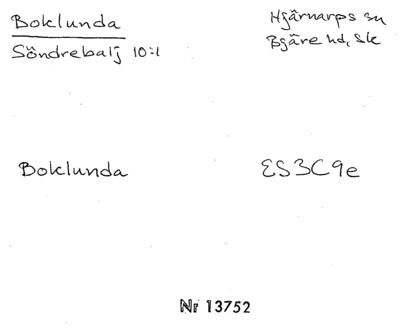 Boklunda
Söndrebalj 10:1
Hjärnarps sn
Bjäre hd, Sk
Boklunda
ES3C9e
Nr 13752